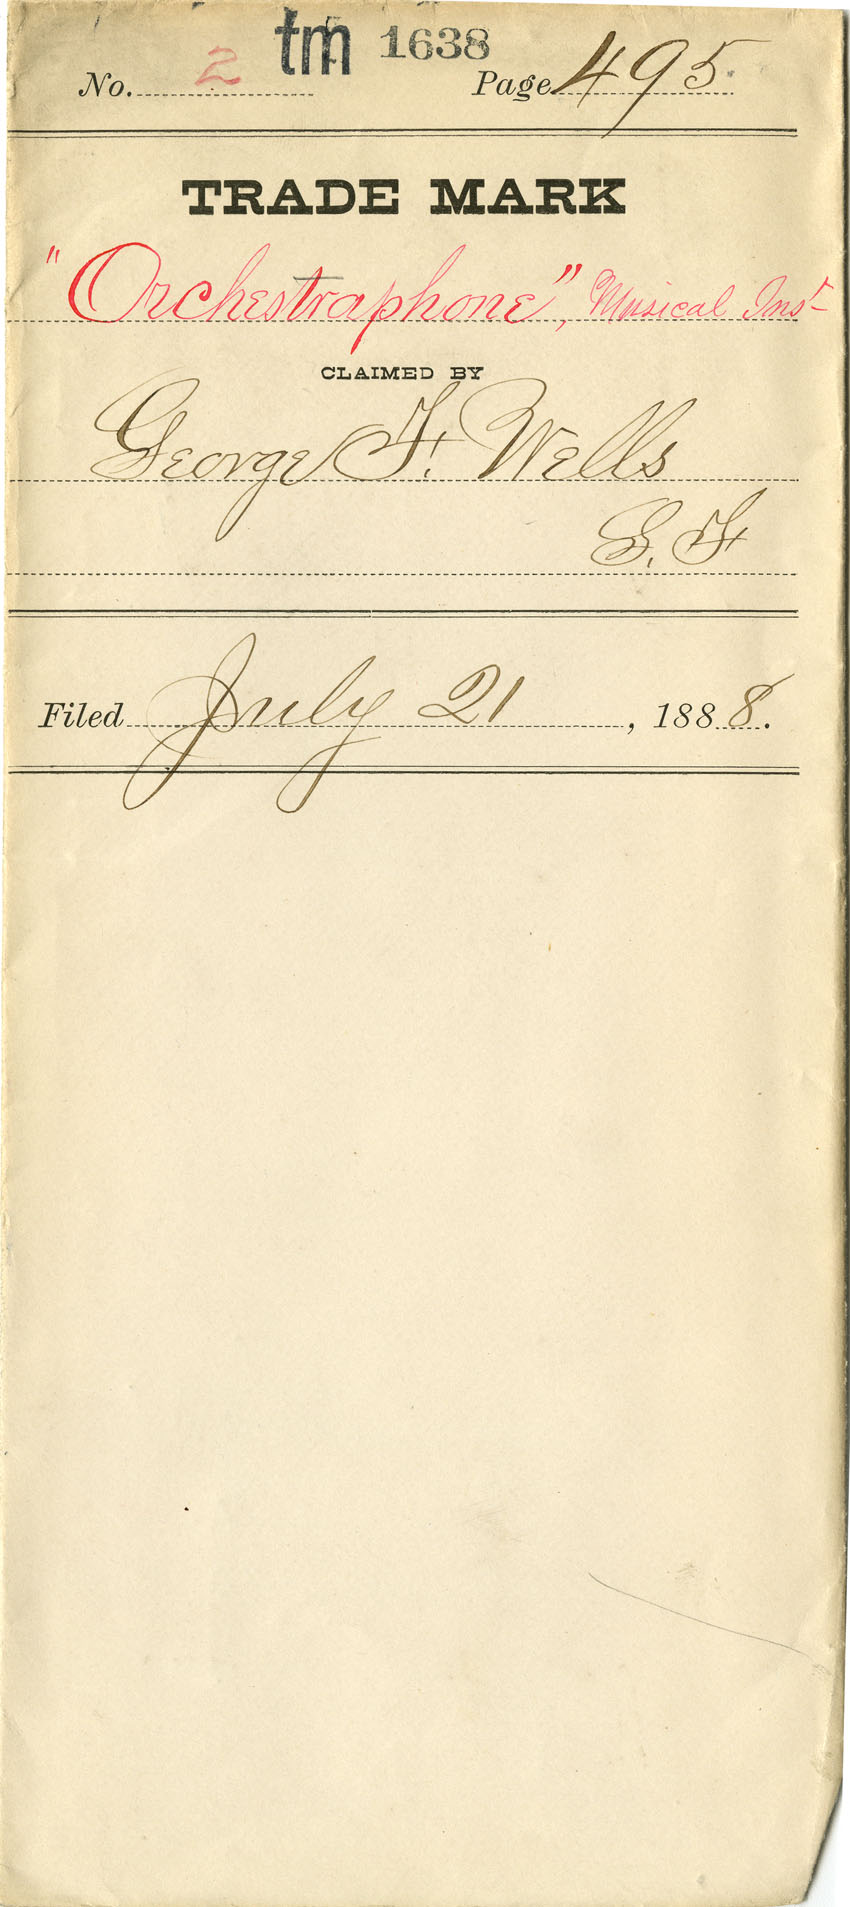 tm 1638
No. 2 Page 495
TRADE MARK
"Orchestraphone", Musical Inst
CLAIMED BY
George F. Wells
S. F.
Filed July 21, 1888.